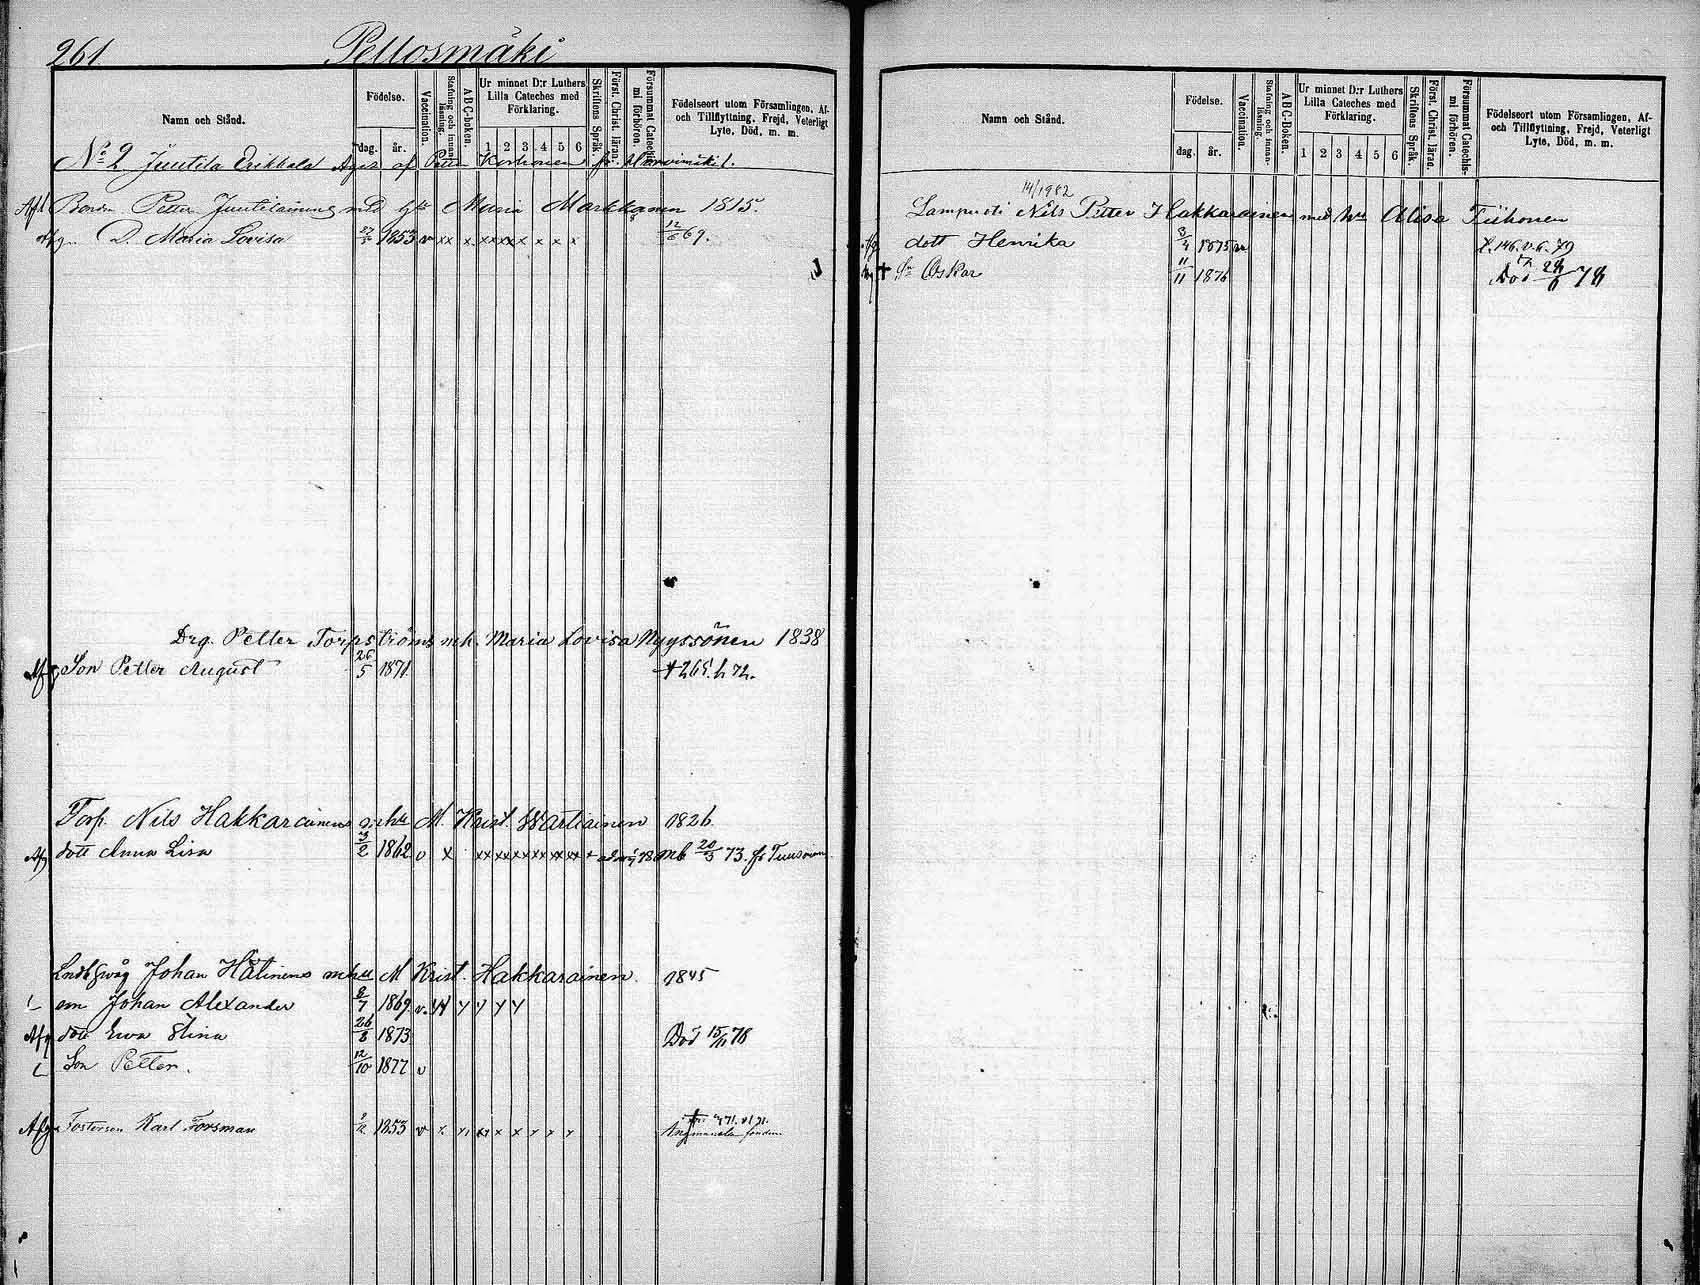 261 Peltosmäki
Namn och Stånd.
Födelse.
dag. år.
Vaccination.
Stafning och innanläsning.
ABC-boken.
Ur minnet D:r Luthers Lilla Cateches med Förklaring.
1 2 3 4 5 6
Skriftens Språk.
Först. Christ. läran.
Försummat Catechismi förhören.
Födelseort utom Församlingen, Af- och Tillflyttning, Frejd, Veterligt Lyte, Död, m. m.
No 2 Juutila Erikkala Äges af Petter Korhonen fr.
Petter Juutilainens Maria Markkanen 1815.
D. Maria Lovisa 1853 v xx x xxxxx x x x x 12/6 69.
Drg. Petter Torpströms mh. Maria Lovisa Nyyssönen 1838
Afg Son Petter August 26/5 1871. † 265. h 72.
Torp. Nils Hakkarainens M. Krist. Wartiainen 1826
Afg dott Anna Lisa 3/2 1862 v x mb 20/3 73. fr
Johan Hätinens M Krist. Hakkarainen. 1845
Johan Alexander 8/7 1869. v.
Afg dott Ewa Stina 26/8 1873 Död 15/11 78
Son Petter. 12/10 1877 v
Afg Fosterson Karl Forsman 1853 v
Namn och Stånd.
Födelse.
dag. år.
Vaccination.
Stafning och innanläsning.
ABC-boken.
Ur minnet D:r Luthers Lilla Cateches med Förklaring.
1 2 3 4 5 6
Skriftens Språk.
Först. Christ. läran.
Försummat Catechismi förhören.
Födelseort utom Församlingen, Af- och Tillflyttning, Frejd, Veterligt Lyte, Död, m. m.
14/1982
Lampuoti Nils Petter Hakkarainen med hu Alisa Tiihonen
Afg dott Henrika 3/4 1875 v 146. 79
† Sn Oskar 11/11 1876 Död 78